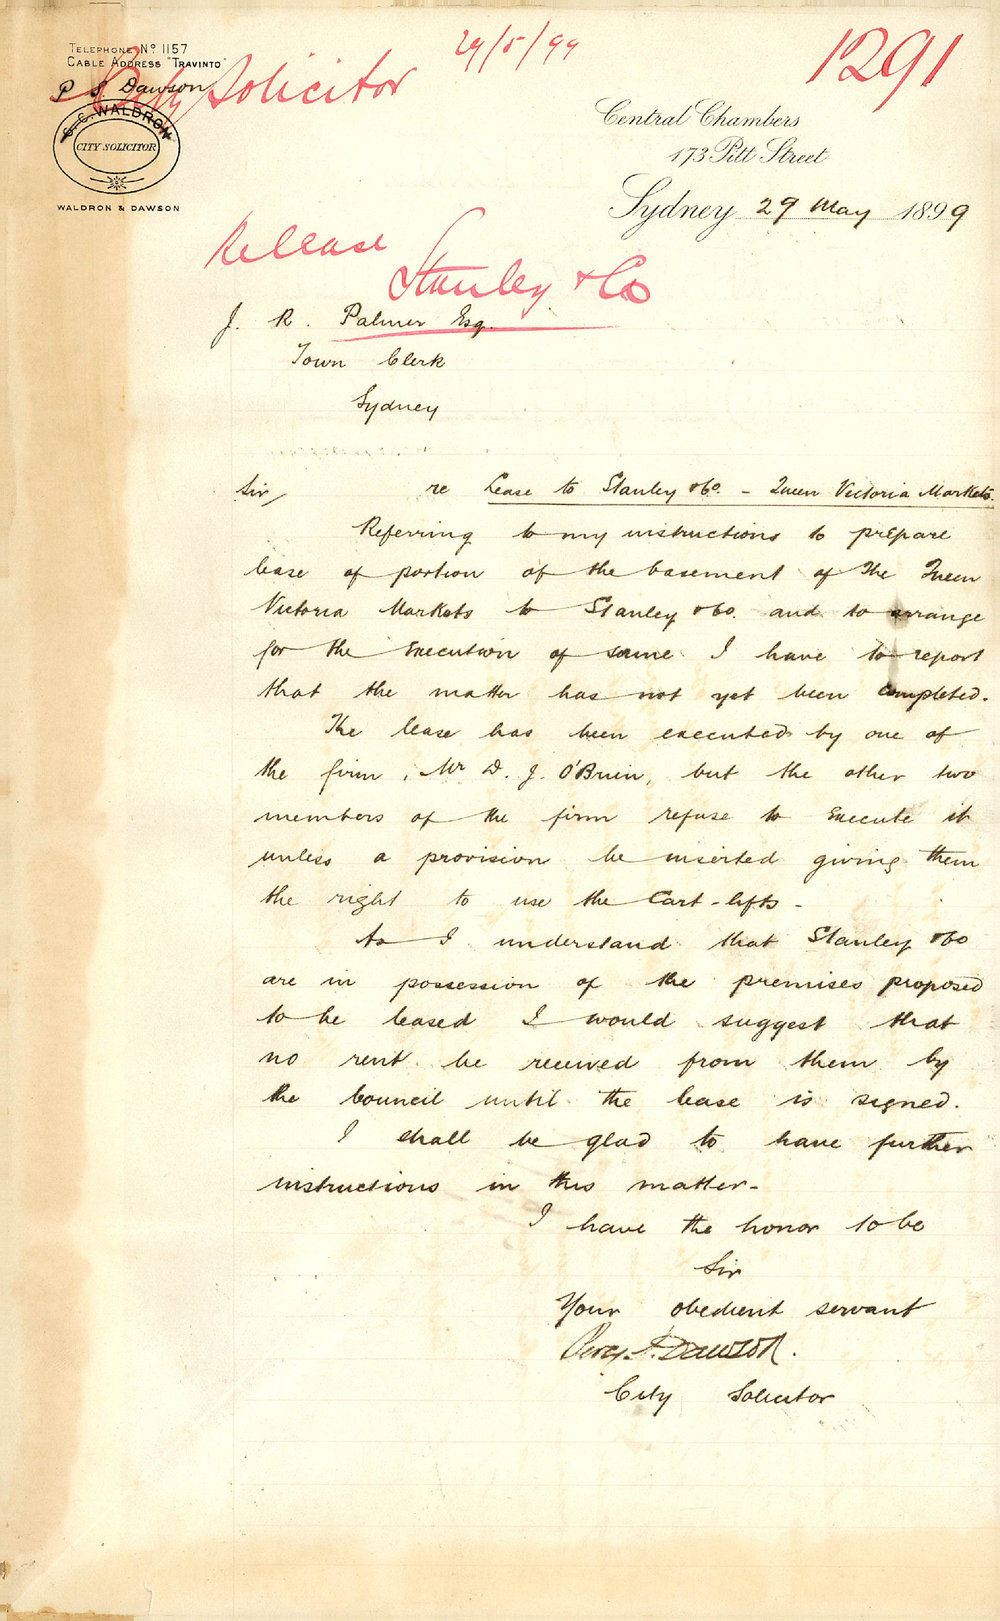 Telephone No 1157
Cable Address "Travinto"
29/5/99
1291
City Solicitor
P S. Dawson
C. C. WALDRON
CITY SOLICITOR
WALDRON & DAWSON
Central Chambers
173 Pitt Street
Sydney 29 May 1899
Release
Stanley & Co
J. R. Palmer Esq.
Town Clerk
Sydney
Sir/ re Lease to Stanley & Co. - Queen Victoria Markets.
Referring to my instructions to prepare
lease of portion of the basement of The Queen
Victoria Markets to Stanley & Co. and to arrange
for the execution of same I have to report
that the matter has not yet been completed.
The lease has been executed by one of
the firm, Mr D. J. O'Brien, but the other two
members of the firm refuse to execute it
unless a provision be inserted giving them
the right to use the Cart-lifts -
As I understand that Stanley & Co
are in possession of the premises proposed
to be leased I would suggest that
no rent be received from them by
the Council until the lease is signed.
I shall be glad to have further
instructions in this matter -
I have the honor to be
Sir
Your obedient servant
Percy S. Dawson.
City Solicitor